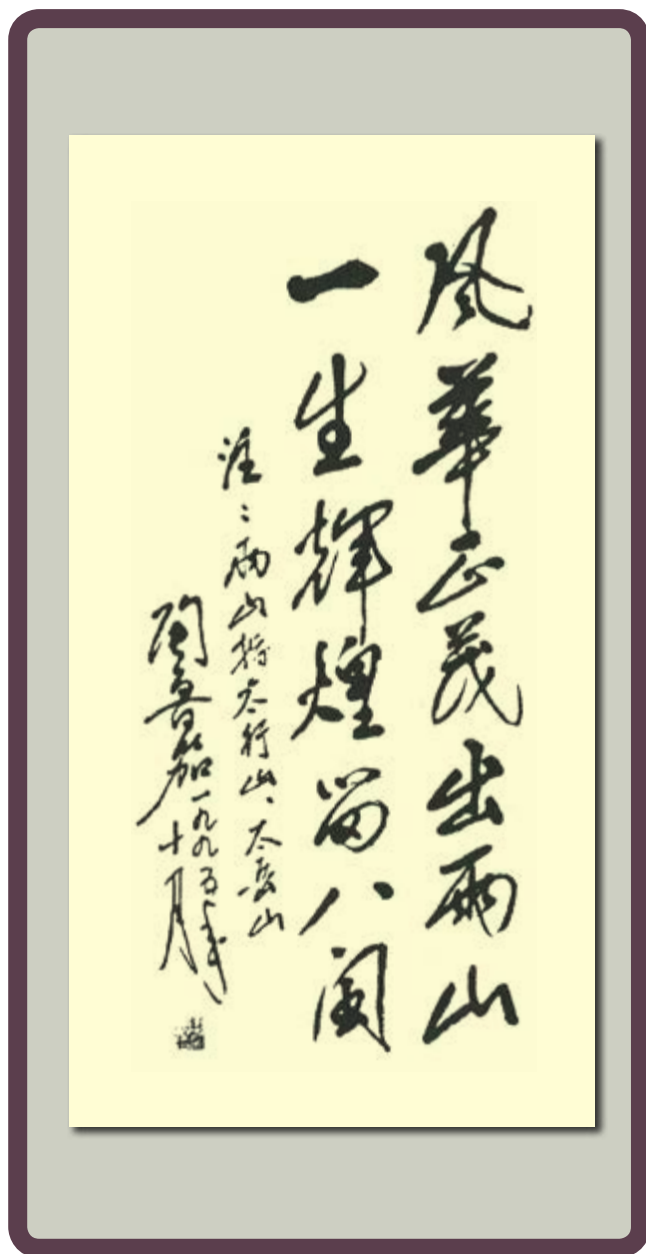 風華正茂出兩山
一生輝煌留八闽
注：兩山指太行山、太岳山
陶鲁笳一九九五年
十月